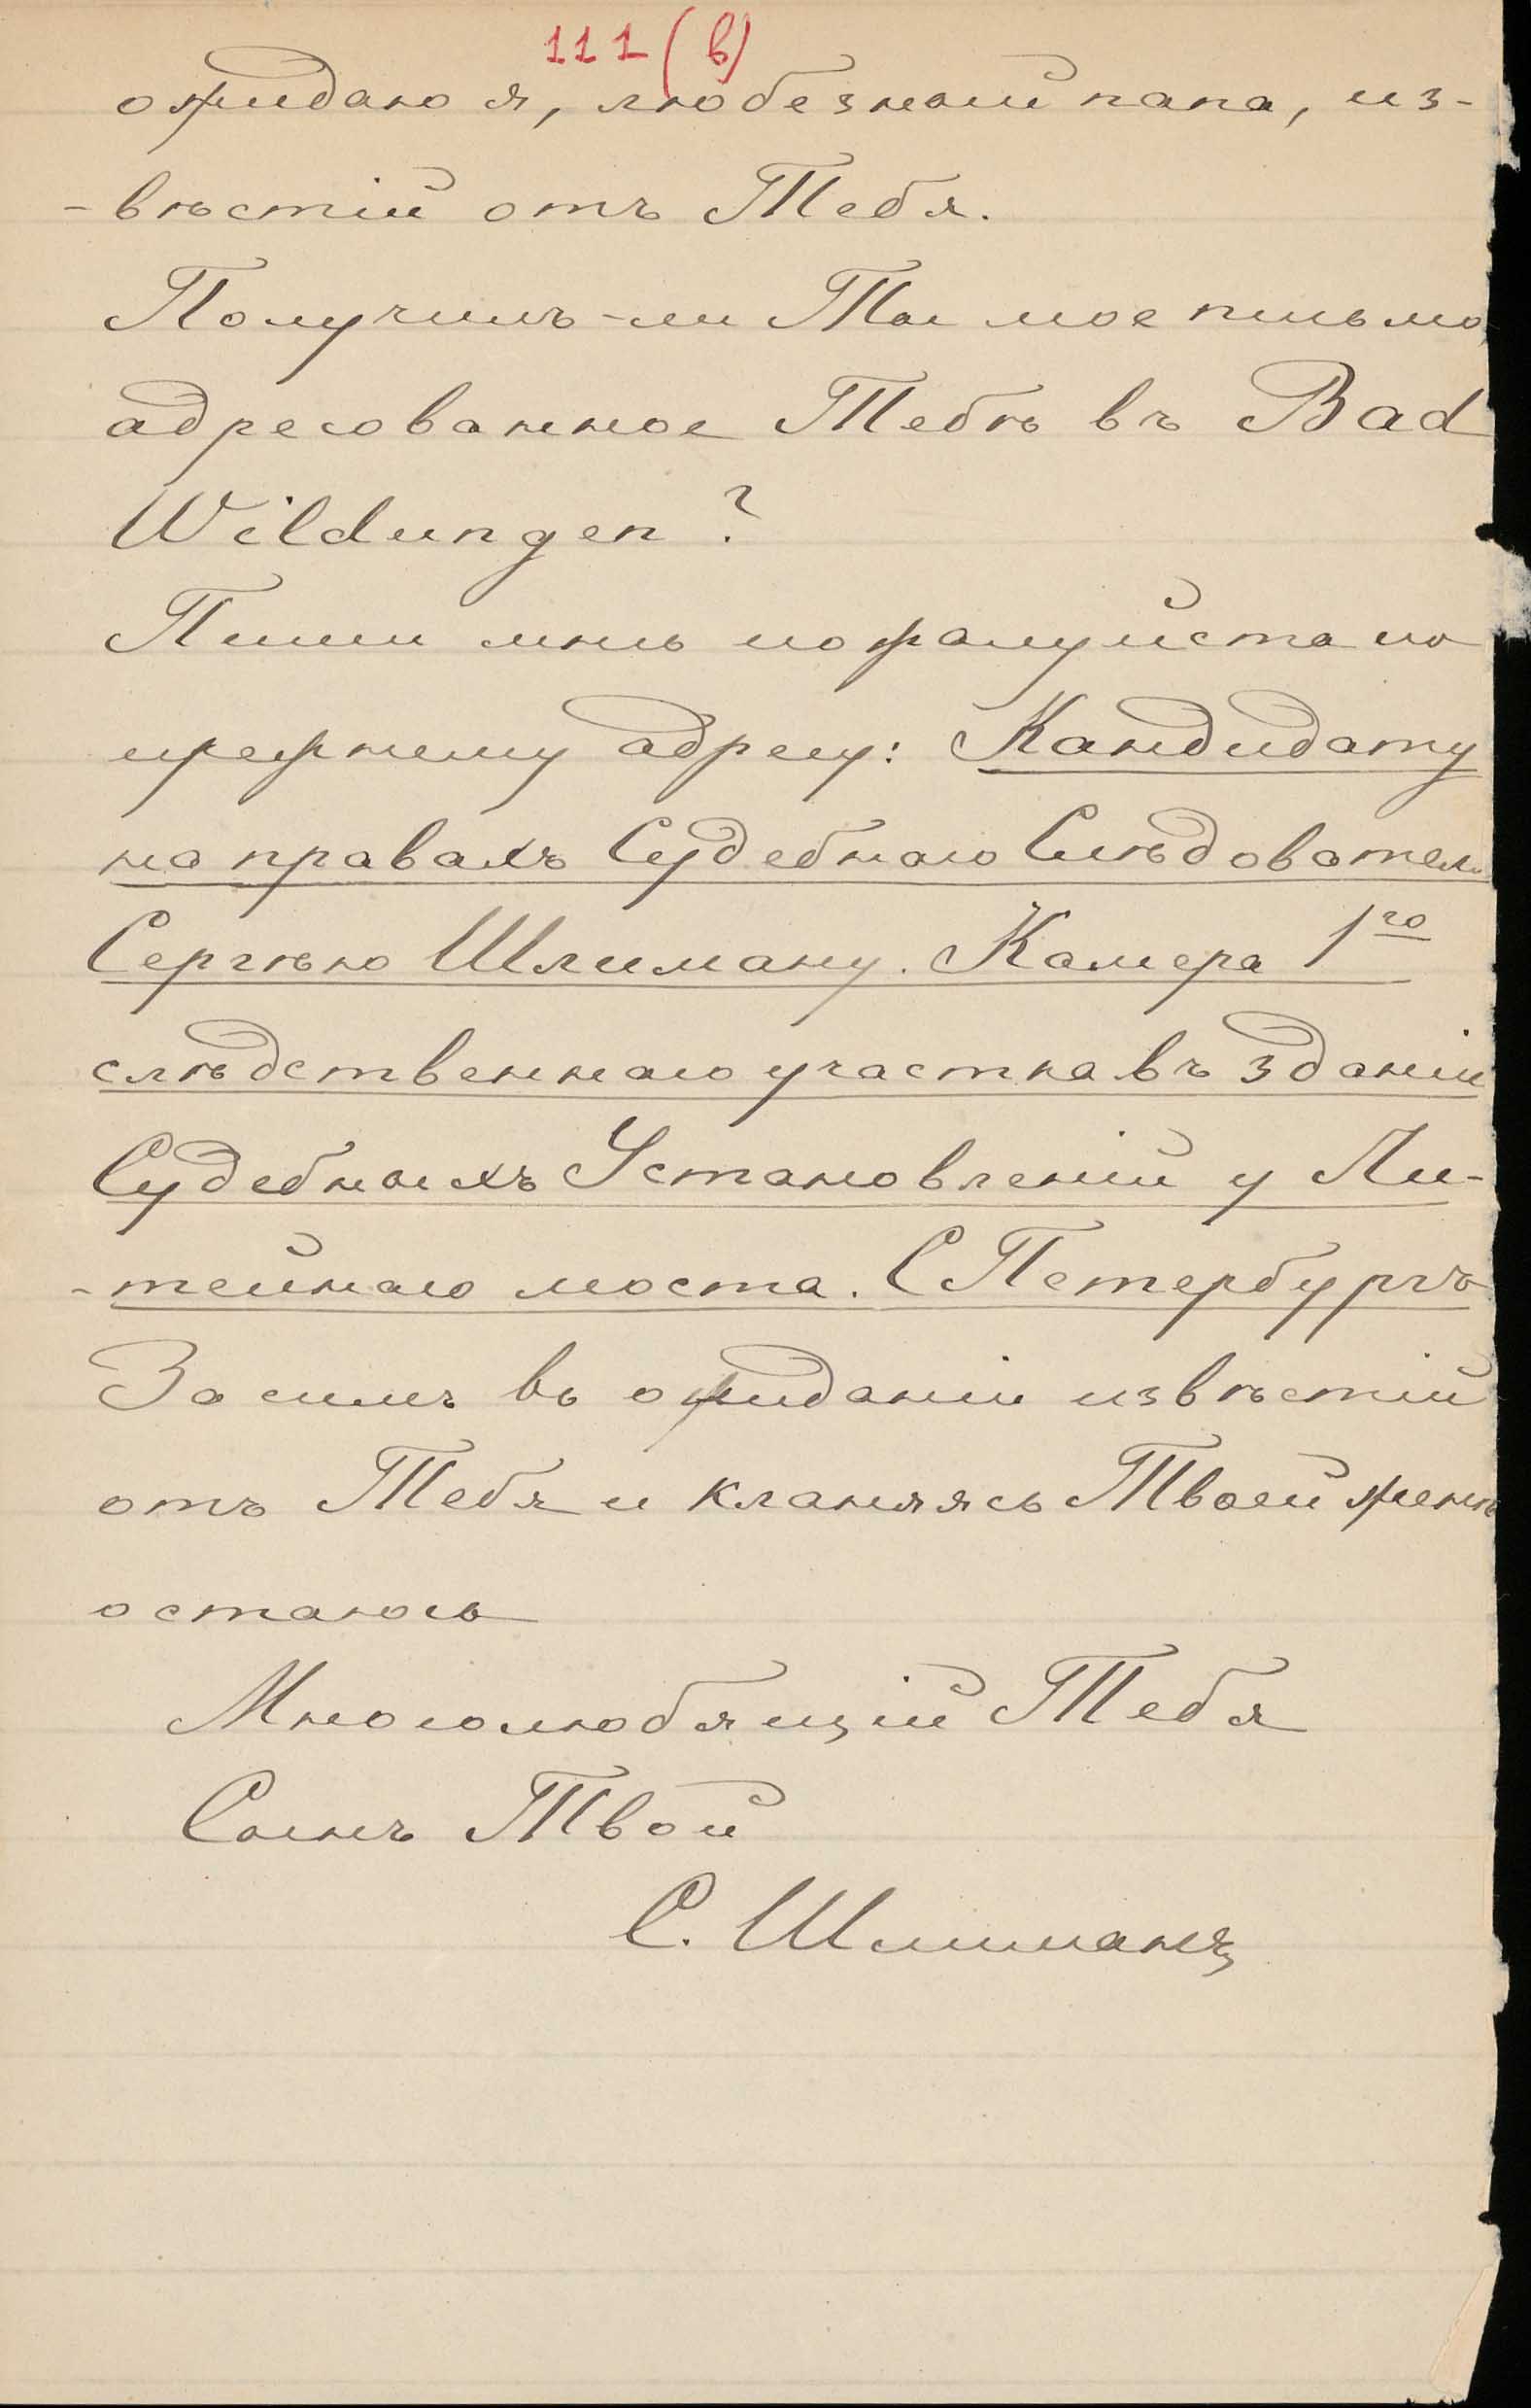 111 (в)
ожидаю я, любезный папа, из-
-вѣстій отъ Тебя.
Получилъ-ли Ты мое письмо,
адресованное Тебѣ въ Bad
Wildungen?
Пиши мнѣ пожалуйста по
прежнему адресу: Кандидату
на правахъ Судебнаго Слѣдователя
Сергѣю Шлиману. Камера 1го
слѣдственнаго участка въ зданіи
Судебныхъ Установленій у Ли-
-тейнаго моста. С Петербургъ
За симъ въ ожиданіи извѣстій
отъ Тебя и кланяясь Твоей женѣ
остаюсь
Многолюбящій Тебя
Сынъ Твой
С. Шлиманъ